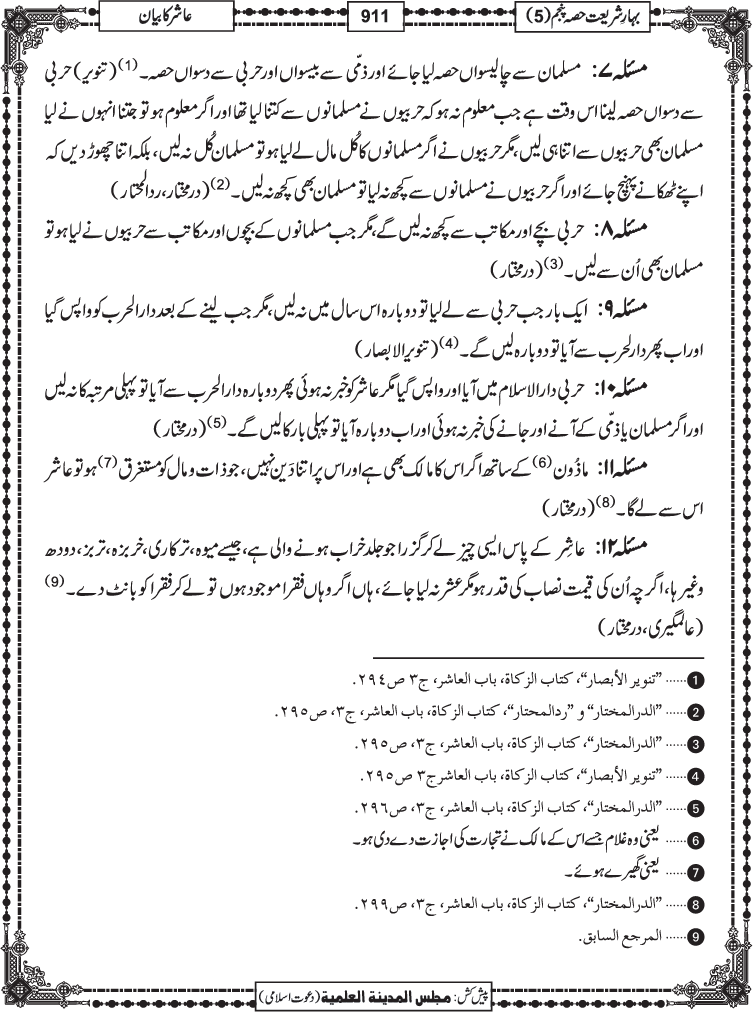 بہارِ شریعت حصہ پنجم (5)
911
عاشر کا بیان
مسئلہ ۷: مسلمان سے چالیسواں حصہ لیا جائے اور ذمّی سے بیسواں اور حربی سے دسواں حصہ۔ (1) (تنویر) حربی
سے دسواں حصہ لینا اس وقت ہے جب معلوم نہ ہو کہ حربیوں نے مسلمانوں سے کتنا لیا تھا اور اگر معلوم ہو تو جتنا انہوں نے لیا
مسلمان بھی حربیوں سے اتنا ہی لیں، مگر حربیوں نے اگر مسلمانوں کا کُل مال لے لیا ہو تو مسلمان کُل نہ لیں، بلکہ اتنا چھوڑ دیں کہ
اپنے ٹھکانے پہنچ جائے اور اگر حربیوں نے مسلمانوں سے کچھ نہ لیا تو مسلمان بھی کچھ نہ لیں۔ (2) (درمختار، ردالمحتار)
مسئلہ ۸: حربی بچے اور مکاتب سے کچھ نہ لیں گے، مگر جب مسلمانوں کے بچوں اور مکاتب سے حربیوں نے لیا ہو تو
مسلمان بھی اُن سے لیں۔ (3) (درمختار)
مسئلہ ۹: ایک بار جب حربی سے لے لیا تو دوبارہ اس سال میں نہ لیں، مگر جب لینے کے بعد دارالحرب کو واپس گیا
اور اب پھر دارلحرب سے آیا تو دوبارہ لیں گے۔ (4) (تنویر الابصار)
مسئلہ ۱۰: حربی دارالاسلام میں آیا اور واپس گیا مگر عاشر کو خبر نہ ہوئی پھر دوبارہ دارالحرب سے آیا تو پہلی مرتبہ کا نہ لیں
اور اگر مسلمان یا ذمّی کے آنے اور جانے کی خبر نہ ہوئی اور اب دوبارہ آیا تو پہلی بار کا لیں گے۔ (5) (درمختار)
مسئلہ ۱۱: ماذُون (6) کے ساتھ اگر اس کا مالک بھی ہے اور اس پر اتنا دَین نہیں، جو ذات و مال کو مستغرق (7) ہو تو عاشر
اس سے لے گا۔ (8) (درمختار)
مسئلہ ۱۲: عاشِر کے پاس ایسی چیز لے کر گزرا جو جلد خراب ہونے والی ہے، جیسے میوہ، ترکاری، خربزہ، تربز، دودھ
وغیرہا، اگرچہ اُن کی قیمت نصاب کی قدر ہو مگر عشر نہ لیا جائے، ہاں اگر وہاں فقرا موجود ہوں تو لے کر فقرا کو بانٹ دے۔ (9)
(عالمگیری، درمختار)
1 ...... "تنویر الأبصار"، کتاب الزکاة، باب العاشر، ج٣ ص٢٩٤.
2 ...... "الدرالمختار" و "ردالمحتار"، کتاب الزکاة، باب العاشر، ج٣، ص٢٩٥.
3 ...... "الدرالمختار"، کتاب الزکاة، باب العاشر، ج٣، ص٢٩٥.
4 ...... "تنویر الأبصار"، کتاب الزکاة، باب العاشر ج٣ ص٢٩٥.
5 ...... "الدرالمختار"، کتاب الزکاة، باب العاشر، ج٣، ص٢٩٦.
6 ...... یعنی وہ غلام جسے اس کے مالک نے تجارت کی اجازت دے دی ہو۔
7 ...... یعنی گھیرے ہوئے۔
8 ...... "الدرالمختار"، کتاب الزکاة، باب العاشر، ج٣، ص٢٩٩.
9 ...... المرجع السابق.
پیش کش: مجلس المدینة العلمیة (دعوتِ اسلامی)